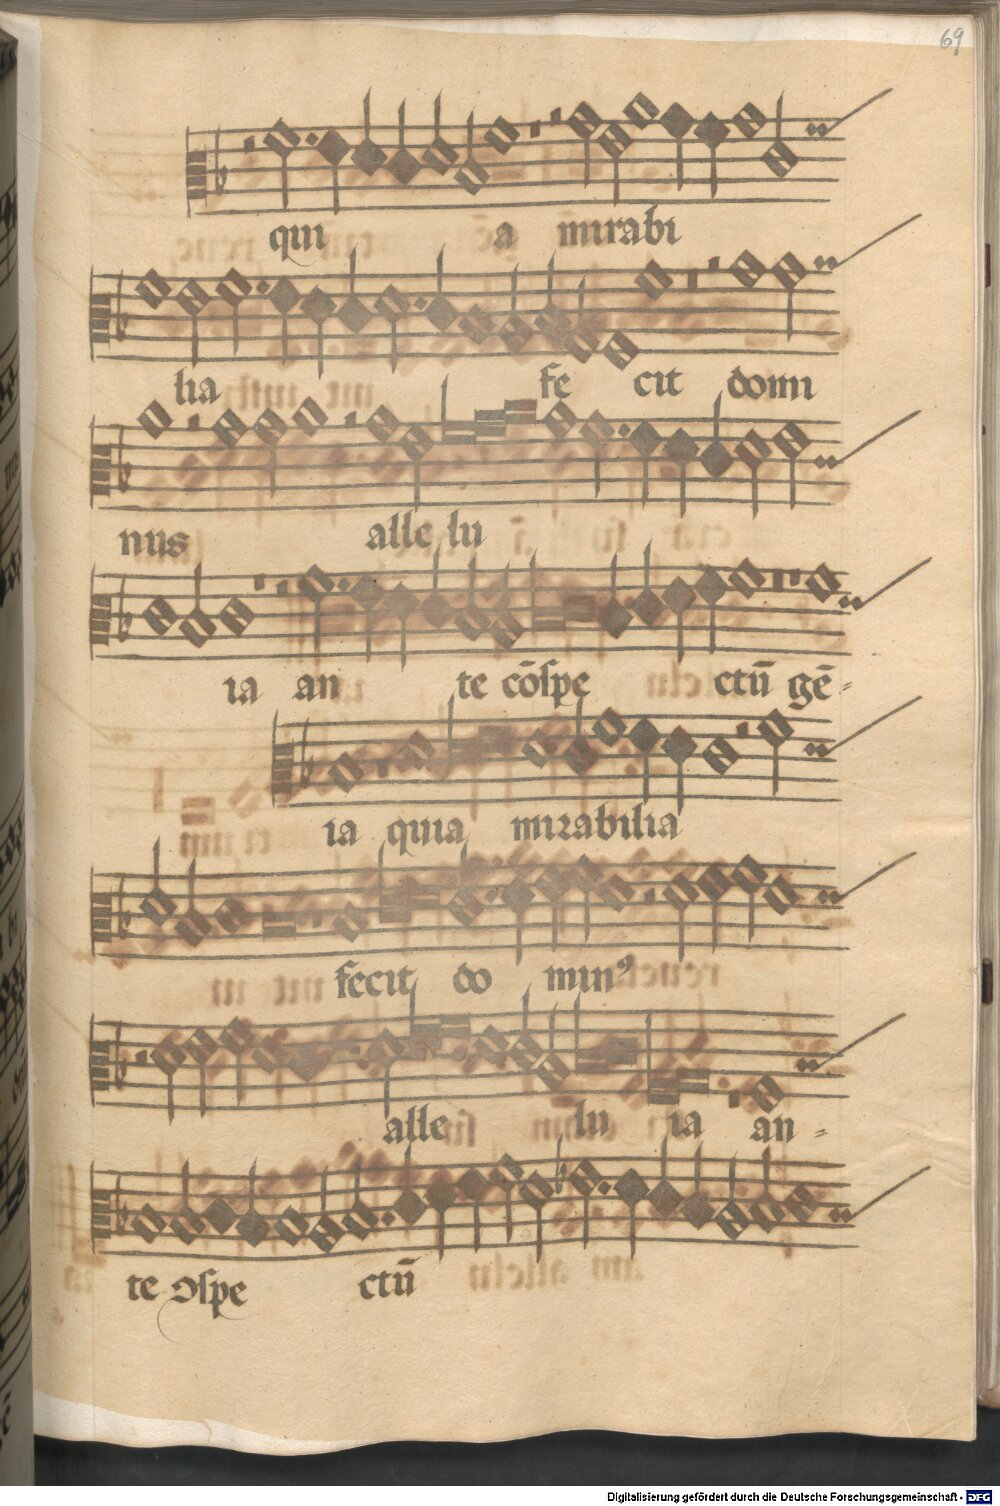 69
qui a mirabi
lia fe cit domi
nus alle lu
ia an te cōspe ctū gē-
ia quia mirabilia
fecit do minꝰ
alle lu ia an-
te ↄspe ctū
Digitalisierung gefördert durch die Deutsche Forschungsgemeinschaft - DFG